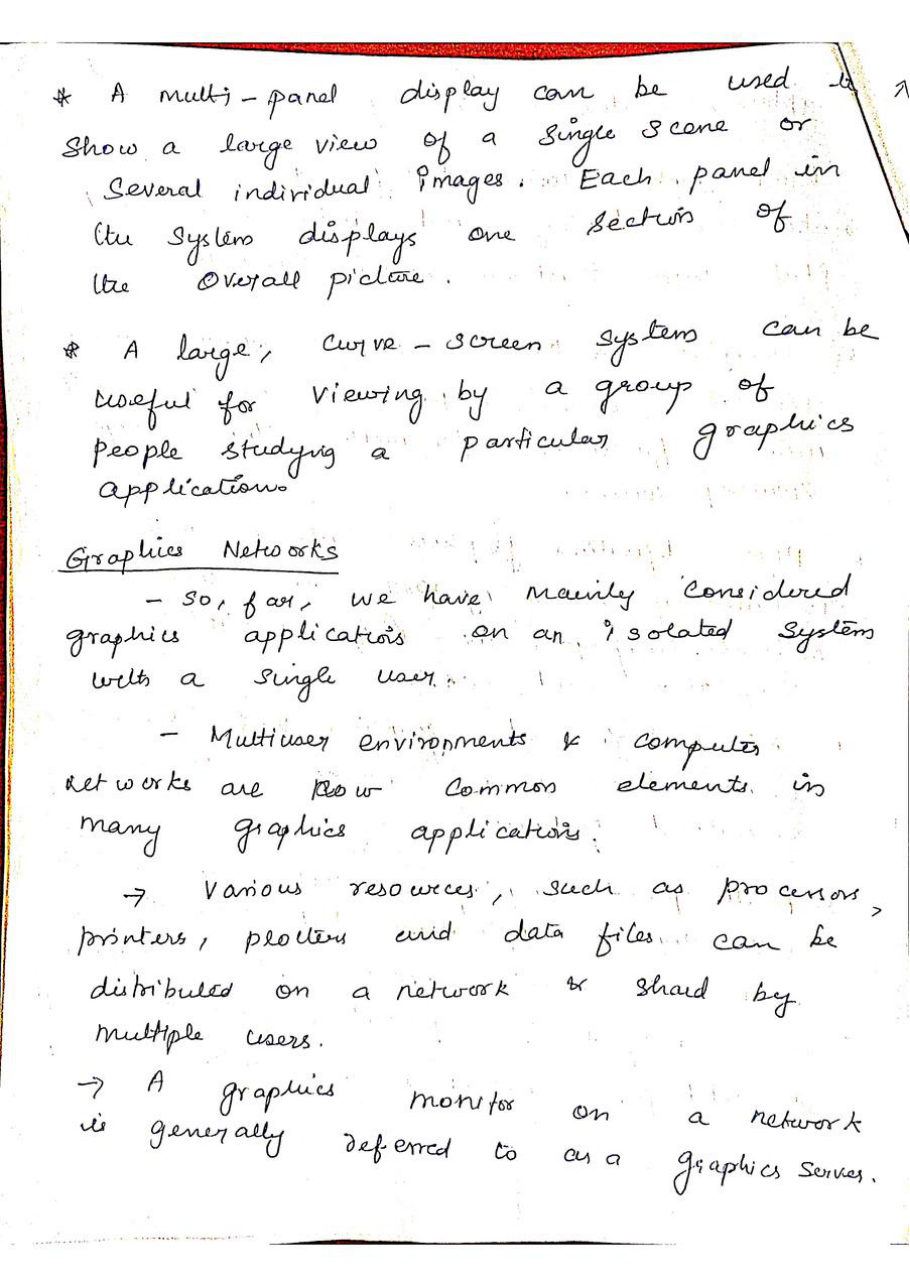 * A multi-panel display can be used to
Show a large view of a single scene or
Several individual images. Each panel in
the System displays one section of
the Overall picture.
* A large, curve-screen system can be
useful for viewing by a group of
people studying a particular graphics
application.
Graphics Networks
- So, far, we have mainly considered
graphics applications on an isolated system
with a single user.
- Multiuser environments & computer
networks are now common elements in
many graphics applications.
→ Various resources, such as processors,
printers, plotters and data files can be
distributed on a network & shared by
multiple users.
→ A graphics monitor on a network
is generally deferred to as a graphics server.